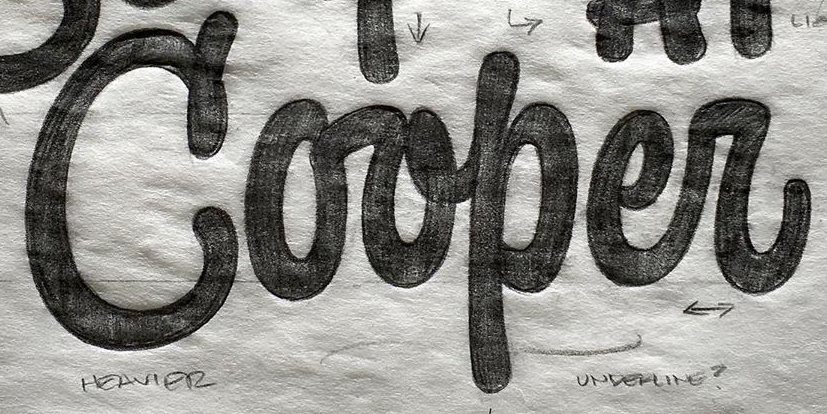 Cooper
HEAVIER
UNDERLINE?